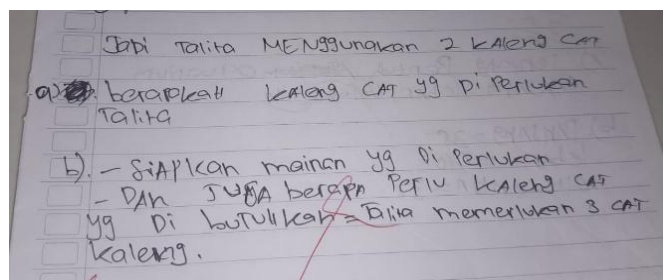 Jadi Talita MENggunakan 2 kAleng CAT
a) berapakah kaleng CAT yg Di Perlukan
Talita
b). - SiAPkan mainan yg Di Perlukan
- DAN JUGA berapa Perlu kAleng CAT
yg Di butuhkan = Talita memerlukan 3 CAT
kaleng.